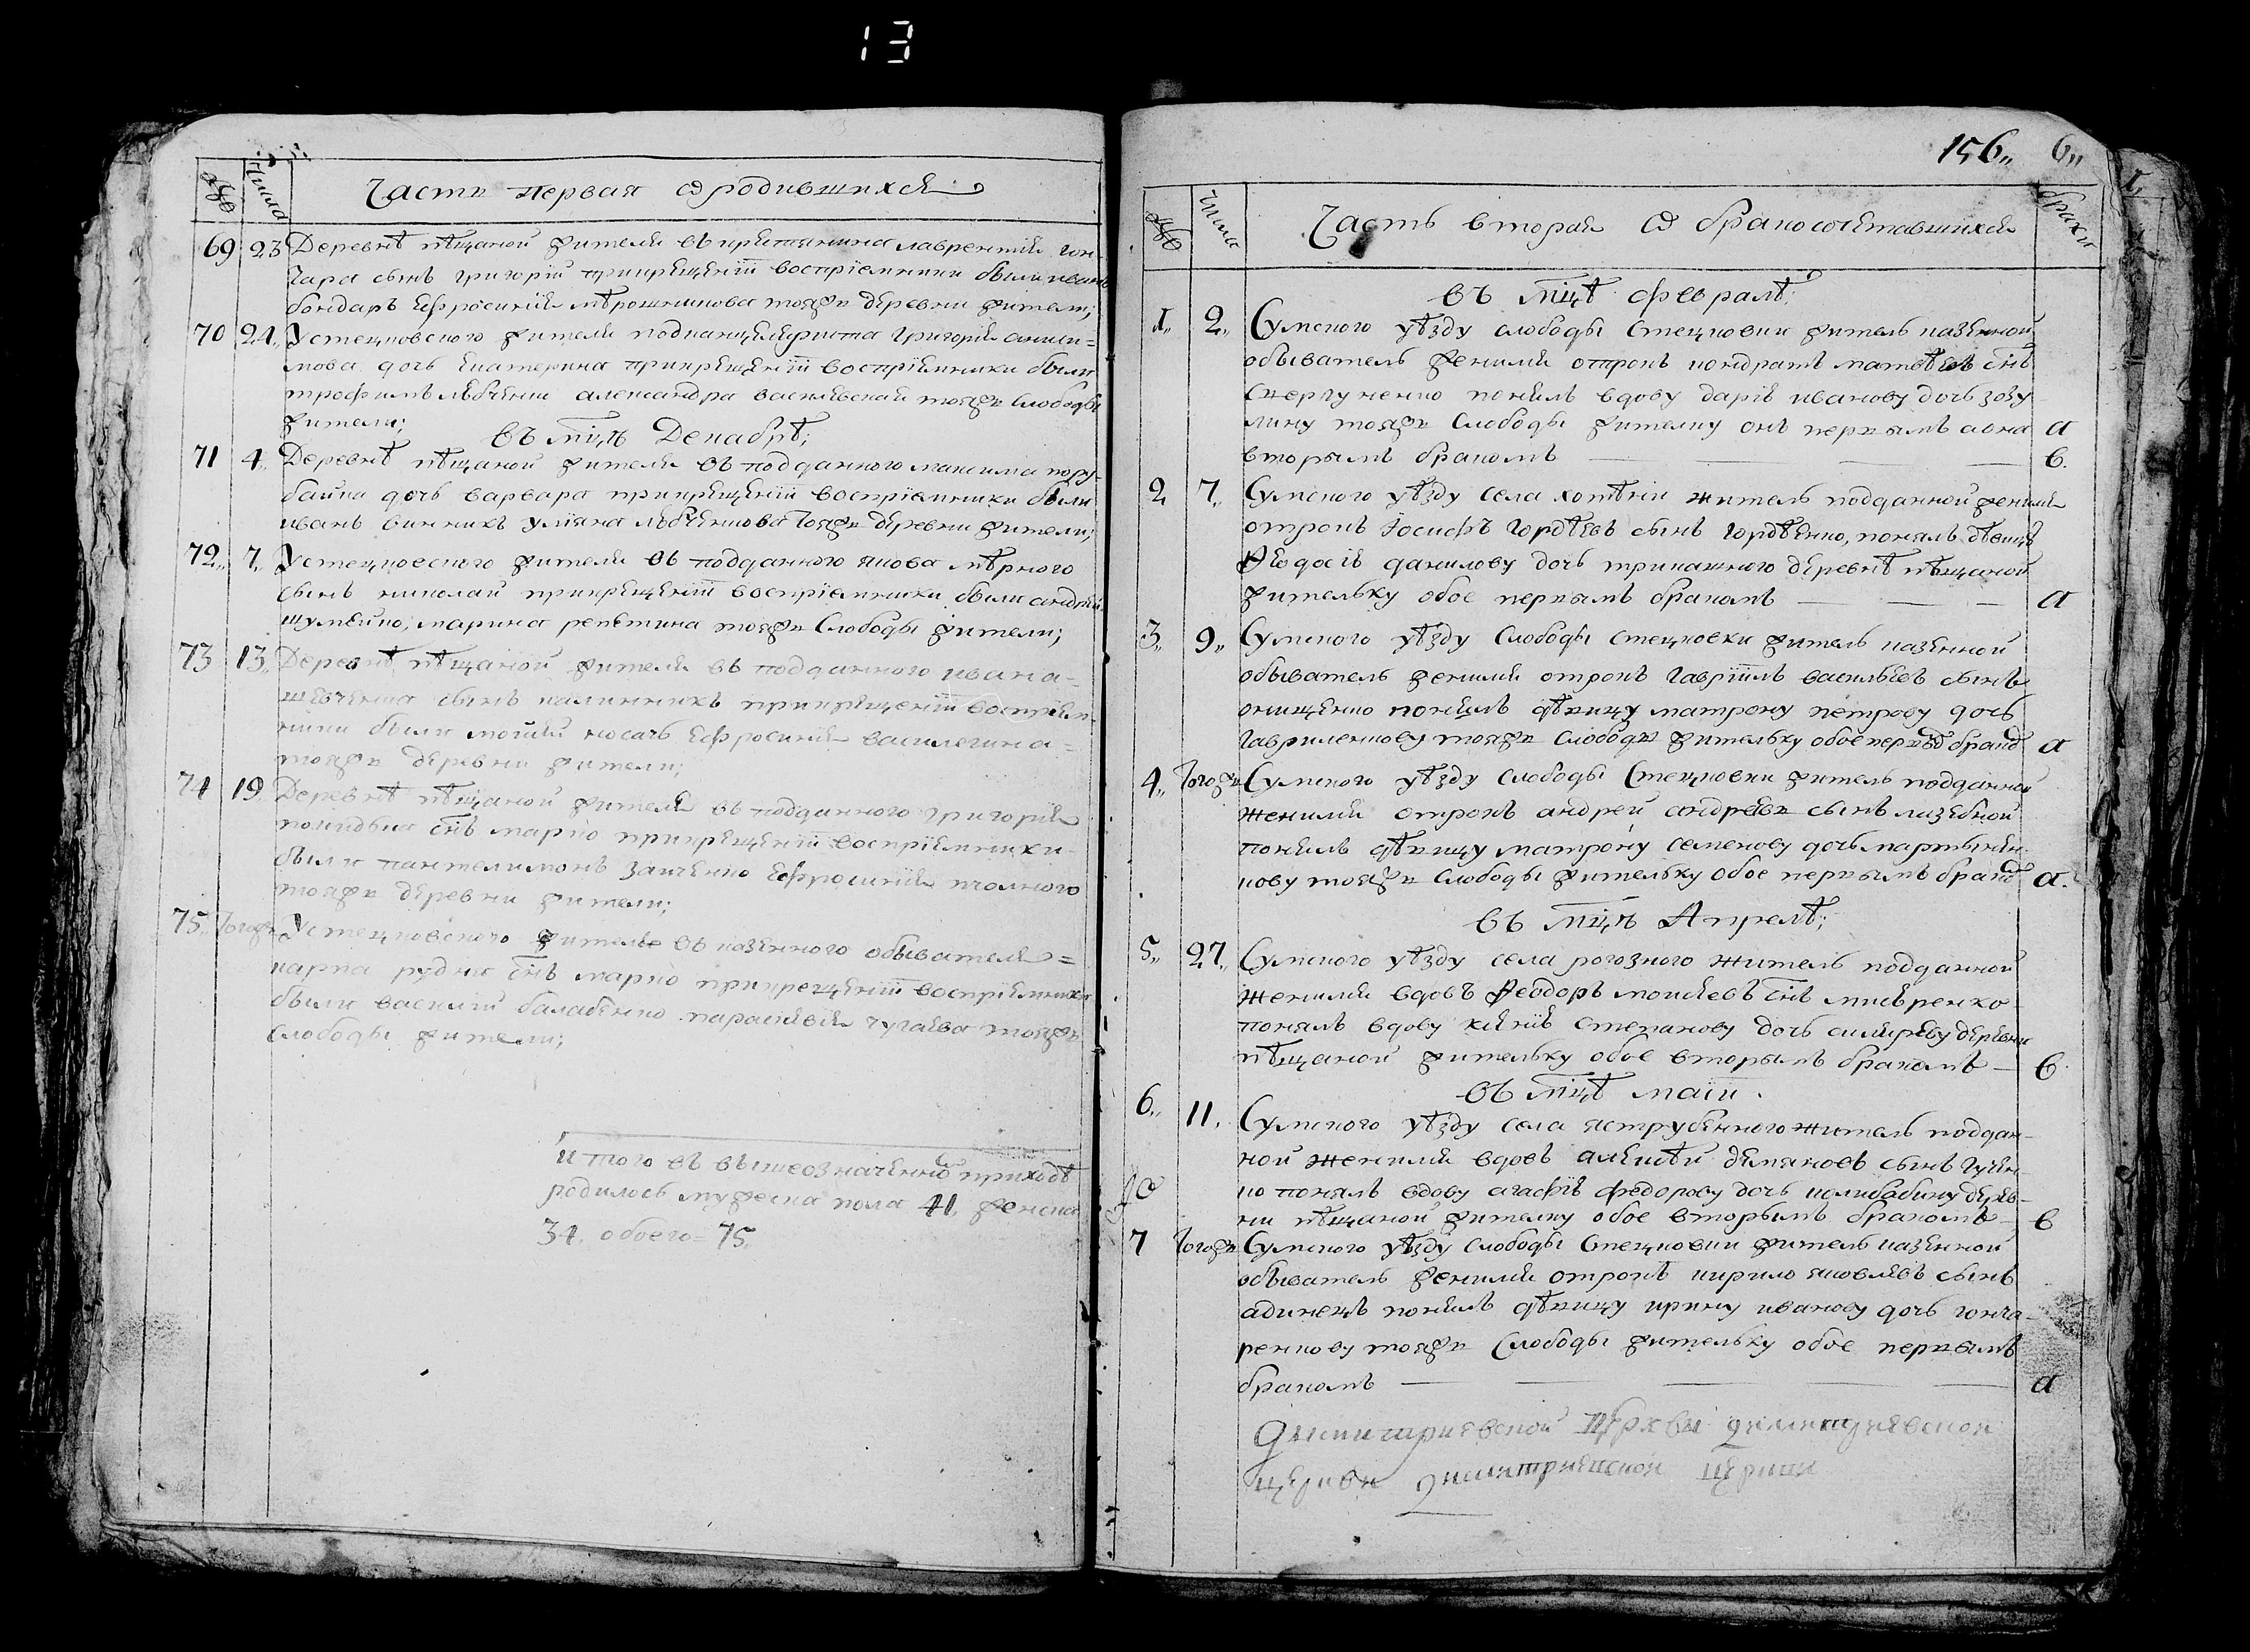 13
№ Числа Часть первая о родившихся
69 23 Деревнѣ пѣщаной жителя въ крепанина лаврентия гон-
чара сынъ григорий прикрещении восприемники были иванъ
бондаръ ефросиния мѣрошникова тояжъ деревни жители;
70 24 У стецковского жителя подканцеляриста григория аниси-
мова дочь екатерина прикрещении восприемники были
трофимъ александра василевская тояжъ слободы
жители;
въ мцѣ Декабрѣ;
71 4 Деревнѣ пѣщаной жителя въ подданного максима пору-
байка дочь варвара прикрещении восприемники были
иванъ винникъ улияна тояжъ деревни жители;
72 7 У стецковского жителя въ подданного якова мѣрного
сынъ николай прикрещении восприемники были андрѣй
шумейко, марина репетина тояжъ слободы жители;
73 13 Деревнѣ пѣщаной жителя въ подданного ивана
шевченка сынъ калинникъ прикрещении восприем-
ники были мойсей носачъ ефросиния василегина
тояжъ деревни жители;
74 19 Деревнѣ пѣщаной жителя въ подданного григория
снъ марко прикрещении восприемники
были пантелимонъ заиченко ефросиния
тояжъ деревни жители;
75 тогожъ У стецковского жителя въ казенного обывателя
карпа рудка снъ марко прикрещении восприемники
были василий балабенко параскевия чугаева тояжъ
слободы жители;
и того въ вышеозначенной приходѣ
родилось мужеска пола 41, женска
34, обоего 75,
156 6
№ Числа Часть вторая о бракосочетавшихся браки
въ мцѣ февралѣ;
1 2 Сумского уѣзду слободы стецковки житель казенной
обыватель женился отрокъ кондратъ матвѣевъ снъ
снергуненко понялъ вдову дарию иванову дочь зозу-
лину тояжъ слободы жителку онъ первымъ а она а
вторымъ бракомъ в
2 7 Сумского уѣзду села хотѣни житель подданной женился
отрокъ иосифъ гордѣевъ сынъ гордѣенко, понялъ дѣвицу
Феодосию данилову дочь деревнѣ пѣщаной
жительку обое первымъ бракомъ а
3 9 Сумского уѣзду слободы стецковки житель казенной
обыватель женился отрокъ гавриилъ васильевъ сынъ
онищенко понялъ дѣвицу матрону петрову дочь
гавриленкову тояжъ слободы жительку обое первымъ бракомъ а
4 тогожъ Сумского уѣзду слободы стецковки житель подданной
женился отрокъ андрей андреевъ сынъ лизебной
понялъ дѣвицу матрону семенову дочь мартынен-
кову тояжъ слободы жительку обое первымъ бракомъ а
въ мцѣ Апрелѣ;
5 27 Сумского уѣзду села рогозного житель подданной
женился вдовъ Феодоръ моисѣевъ снъ
понялъ вдову ксению степанову дочь деревни
пѣщаной жительку обое вторымъ бракомъ в
въ мцѣ маии
6 11 Сумского уѣзду села яструбенного житель поддан-
ной женился вдовъ алексѣй демяновъ сынъ гучен-
ко понялъ вдову агафию федорову дочь колибабину дерев-
ни пѣщаной жителку обое вторымъ бракомъ в
7 тогожъ Сумского уѣзду слободы стецковки житель казенной
обыватель женился отрокъ кирило яковлевъ сынъ
адинецъ понялъ дѣвицу ирину иванову дочь гонча-
ренкову тояжъ слободы жительку обое первымъ
бракомъ а
димитриевской церкви димитриевской
церкви димитриевской церкви